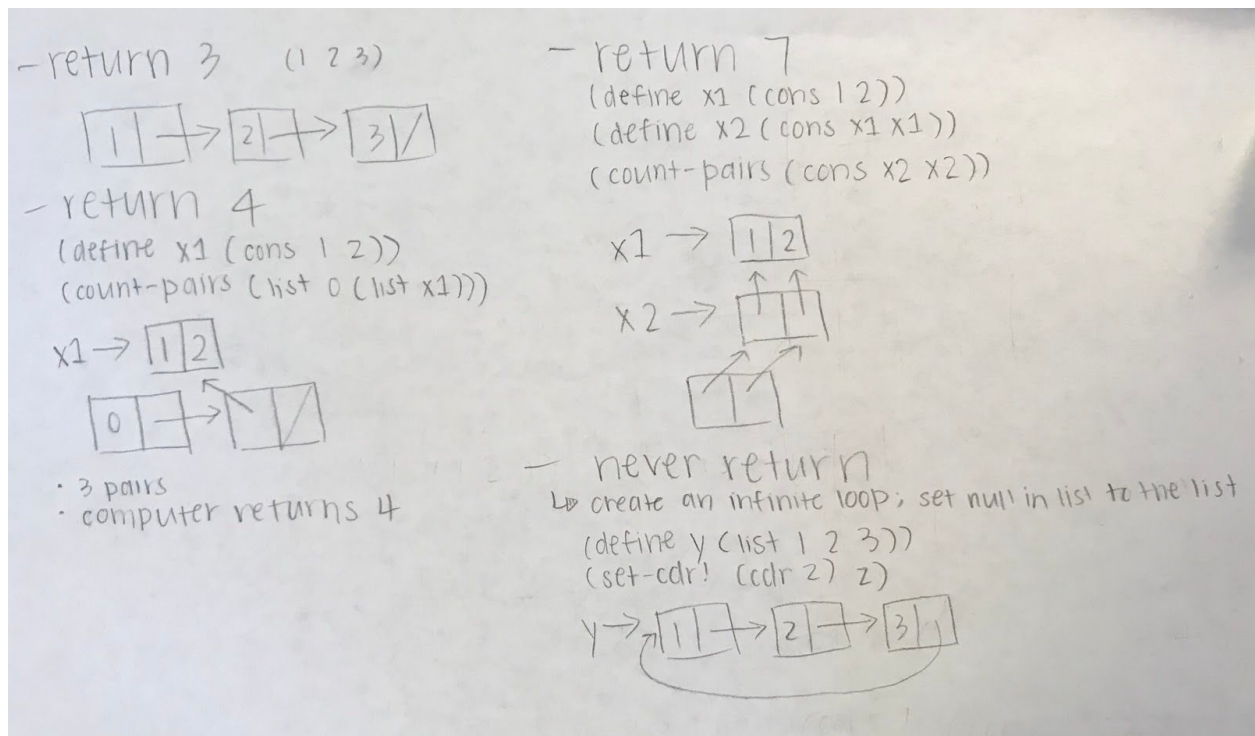 - return 3 (1 2 3)
1 2 3
- return 4
(define x1 (cons 1 2))
(count-pairs (list 0 (list x1)))
x1 → 1 2
0
· 3 pairs
· computer returns 4
- return 7
(define x1 (cons 1 2))
(define x2 (cons x1 x1))
(count-pairs (cons x2 x2))
x1 → 1 2
x2 →
- never return
↳ create an infinite loop; set null in list to the list
(define y (list 1 2 3))
(set-cdr! (cdr z) z)
y → 1 2 3